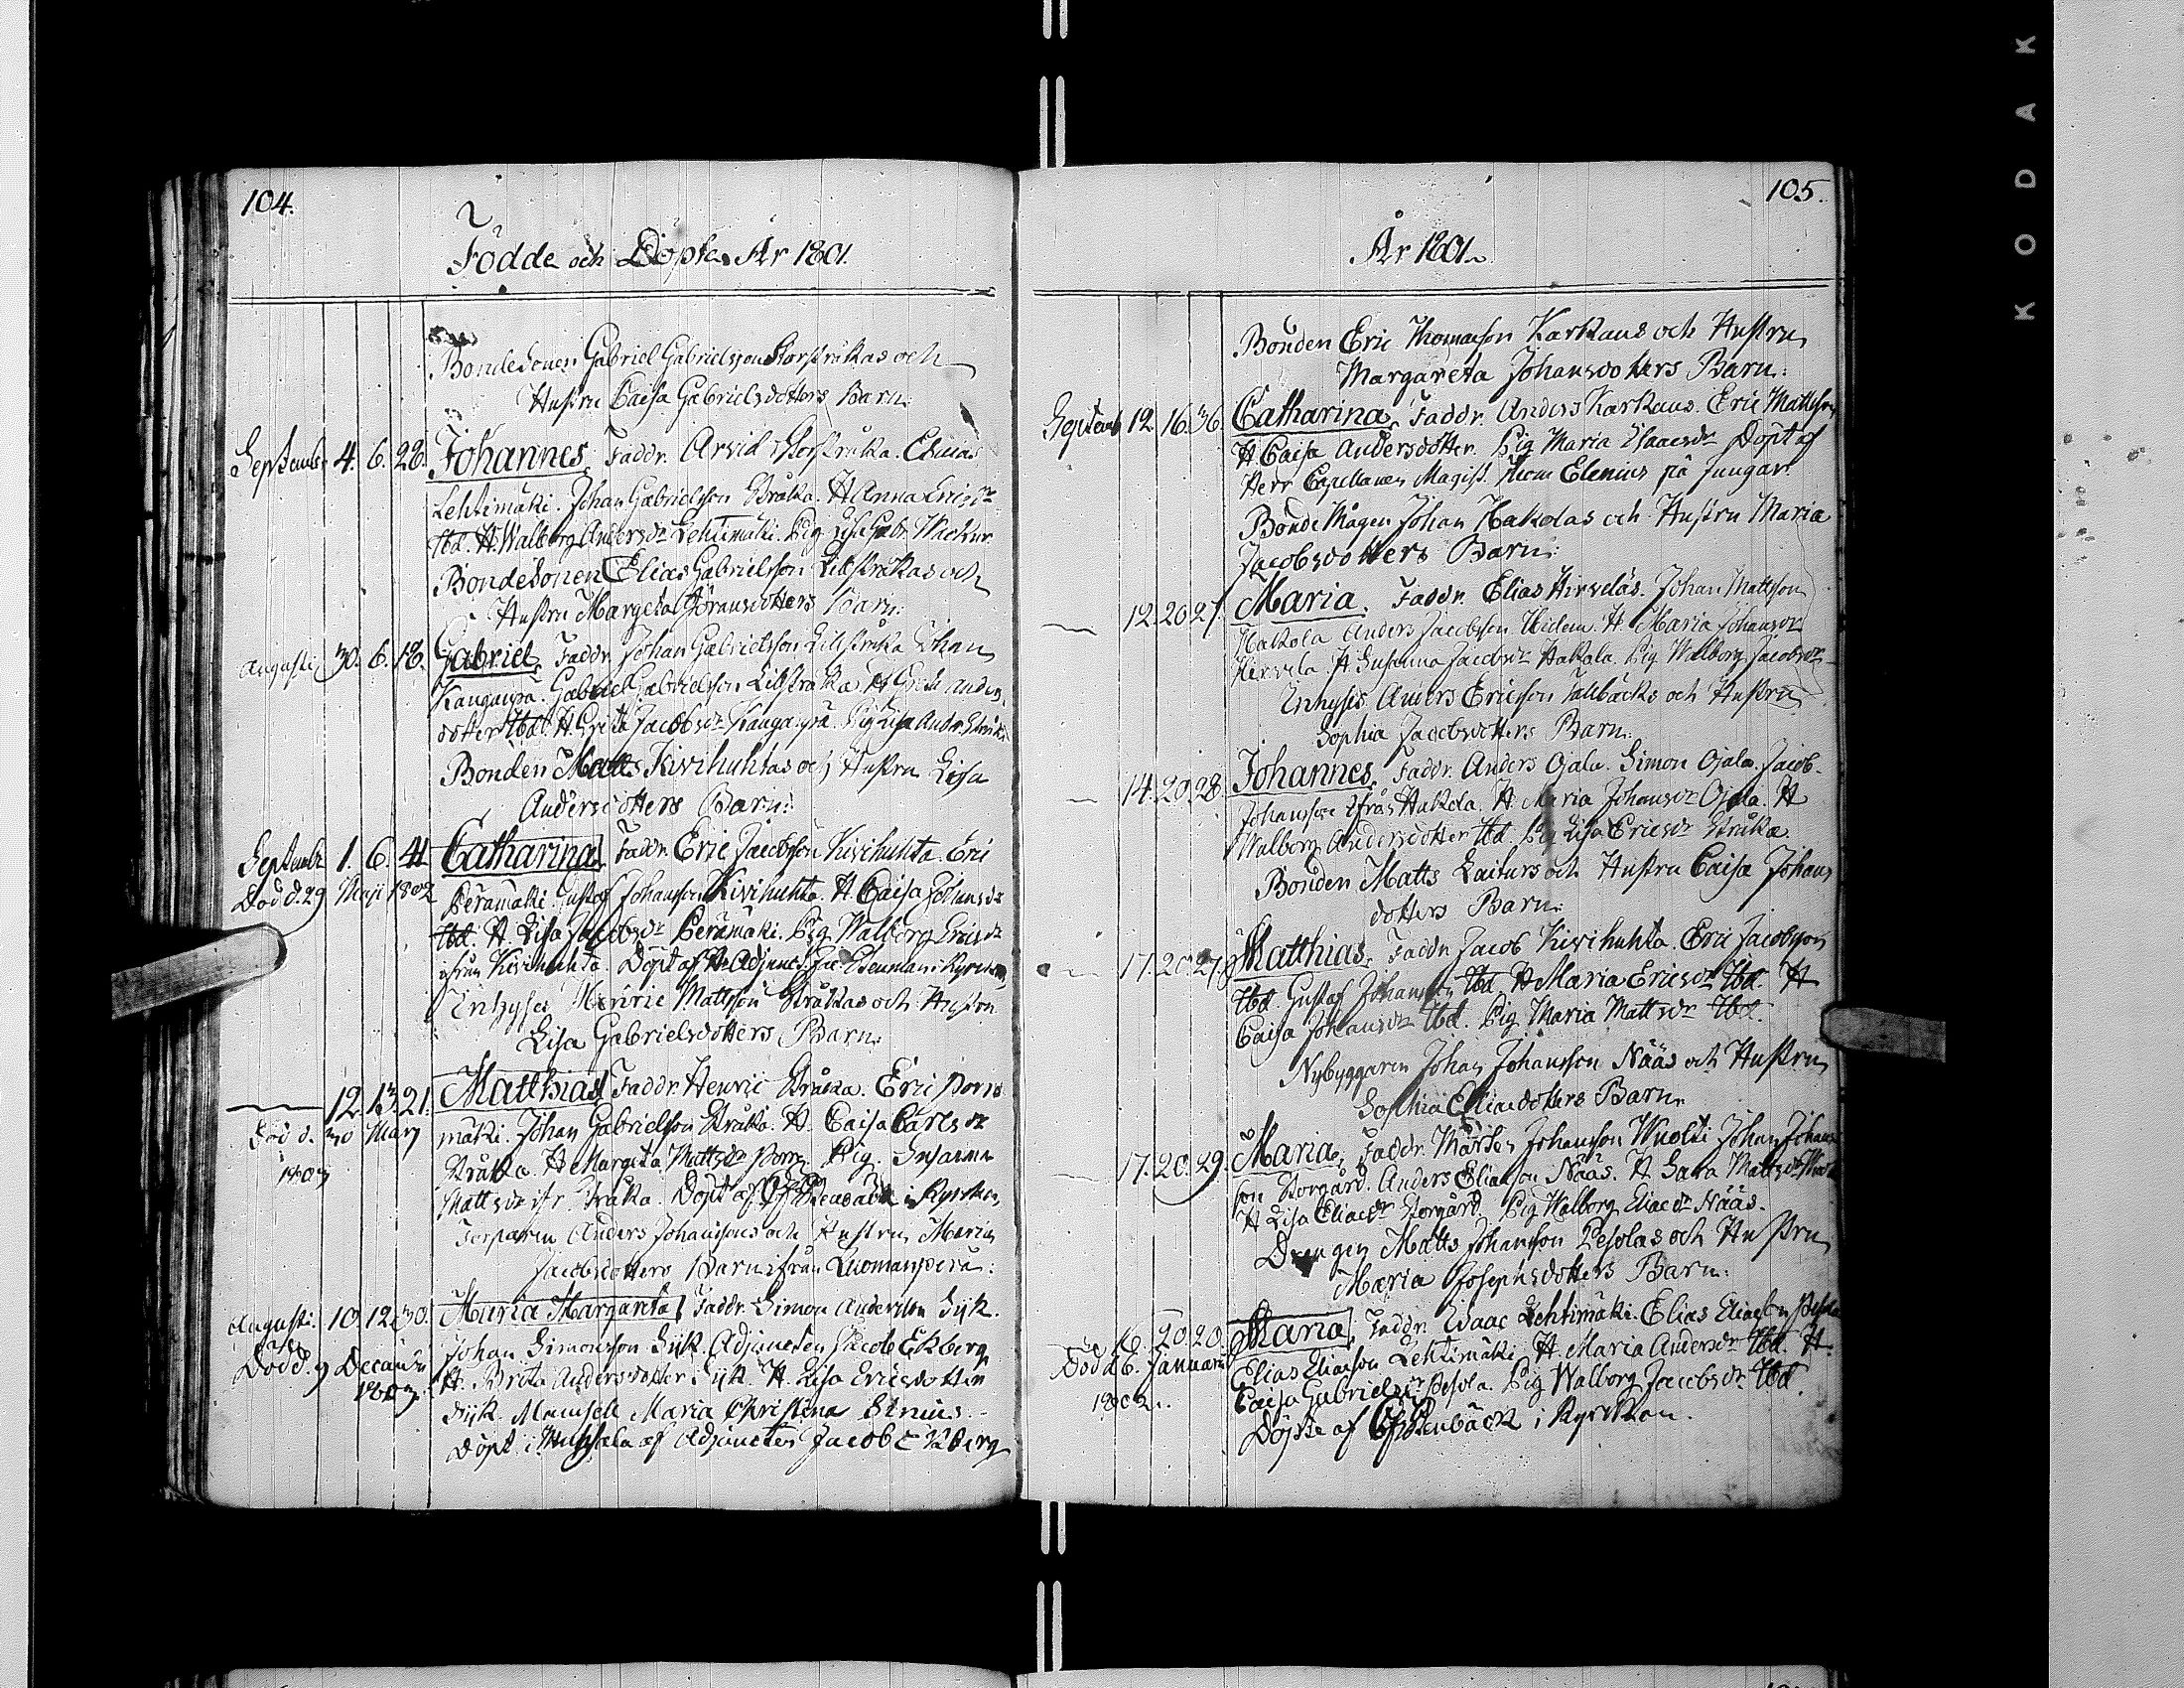 104.
Födde och Döpte År 1801.
Bondesonen Gabriel Gabrielsson Storstråkas och
Hustru Caisa Gabrielsdotters Barn.
Septembr 4. 6. 28. Johannes. Faddr. Arvid Storstråka. Elias
Lehtimäki. Johan Gabrielsson Stråka. H. Anna Ericsdr
Ibd. H. Walborg Andersdr Lehtimäki. Pig. Lisa Gabr.
Bondesonen Elias Gabrielsson Lillstråkas och
Hustru Margeta Göransdotters Barn.
Augusti 30. 6. 18. Gabriel. Faddr. Johan Gabrielsson Lillstråka Johan
Kangaspä. Gabriel Gabrielsson Lillstråka. H. Greta Anders
dotter Ibd. H. Greta Jacobsdr Kangaspä. Pig Lisa Andr. Stråka
Bonden Matts Kivihuhtas och Hustru Lisa
Andersdotters Barn.
Septembr 1. 6. 41. Catharina. Faddr. Eric Jacobsson Kivihuhta. Eric
Död d. 29 Maji 1802
Perämäki. Gustaf Johansson Kivihuhta. H. Caisa Johansdr
Ibd. H. Lisa Jacobsdr Perämäki. Pig Walborg Ericsdr
ifrån Kivihuhta. Döpt af H. Adjunct. Jac. Kyrckan
Inhyses Henric Mattsson Stråkas och Hustru
Lisa Gabrielsdotters Barn.
12. 13. 21. Matthias. Faddr. Henric Stråka. Eric Porras
Död d. 30 Marj
mäki. Johan Gabrielsson Stråka. H. Caisa Carlsdr
Stråka. H. Margeta Mattsdr Porras. Pig. Susanna
1803
Mattsdr ifr. Stråka. Döpt af i Kyrckan
Torparen Anders Johanssons och Hustru Maria
Jacobsdotters Barn ifrån Luomanperä.
Augusti. 10. 12. 30. Maria Margareta. Faddr. Simon Andersson Sijk.
Johan Simonsson Sijk. Adjuncten Jacob Ekberg
Död d. 9 Decembr
H. Brita Andersdotter Sijk. H. Lisa Ericsdotter
1803.
Sijk. Mamsell Maria Christina
Döpt i af Adjuncten Jacob Ekberg
105.
År 1801.
Bonden Eric Thomasson Karhaus och Hustru
Margareta Johansdotters Barn.
Septemb 12. 16. 36. Catharina. Faddr. Anders Karhaus. Eric Mattsson
H Caisa Andersdotter. Pig Maria Isaacsdr Döpt af
Herr Capellanen Magist. på Jungar.
Bonde Mågen Johan Hakolas och Hustru Maria
Jacobsdotters Barn.
12. 20. 27. Maria. Faddr. Elias Hirveläs. Johan Mattsson
Hakola Anders Jacobsson H. Maria Johansdr
Hirvela. H. Susanna Jacobsdr Hakola. Pig Walborg Jacobsdr
Inhyses Anders Ericsson Tallbacks och Hustru
Sophia Jacobsdotters Barn.
14. 20. 28. Johannes. Faddr. Anders Ojala. Simon Ojala. Jacob
Johansson ifrån Hakola. H. Maria Johansdr Ojala. H
Walborg Andersdotter Ibd. Pig Lisa Ericsdr Stråka.
Bonden Matts Laiturs och Hustru Caisa Johans
dotters Barn.
17. 20. 27. Matthias. Faddr. Jacob Kivihuhta. Eric Jacobsson
Ibd. Gustaf Johansson Ibd. H Maria Ericsdr Ibd. H
Caisa Johansdr Ibd. Pig Maria Mattsdr Ibd.
Nybyggaren Johan Johansson Nääs och Hustru
Sophia Eliaedotters Barn.
17. 20. 29. Maria. Faddr. Mårten Johansson Wuolti Johan Johans
son Storgård. Anders Eliasson Nääs. H Sara Mattsdr
H Lisa Eliaedr Storgård. Pig Walborg Eliaedr Nääs.
Drengen Matts Johansson Pesolas och Hustru
Maria Josephsdotters Barn.
16. 20. 20. Maria. Faddr. Isaac Lehtimäki. Elias Eliasson Pesola
Död d 6. Januari
Elias Eliasson Lehtimäki. H. Maria Andersdr Ibd. H.
1802.
Caisa Gabrielsdr Pesola. Pig Walborg Jacobsdr Ibd.
Döpte af i Kyrckan.
KODAK